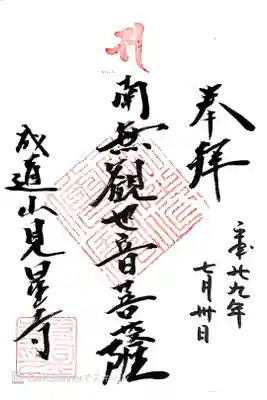 奉拝
平成廿九年
七月卅日
南無觀世音菩薩
成道山見星寺